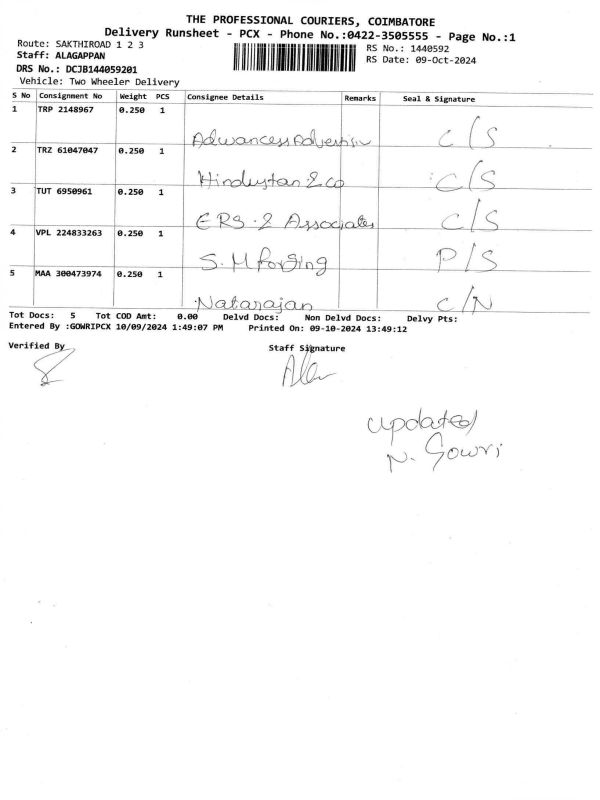 THE PROFESSIONAL COURIERS, COIMBATORE
Delivery Runsheet - PCX - Phone No.:0422-3505555 - Page No.:1
Route: SAKTHIROAD 1 2 3
RS No.: 1440592
Staff: ALAGAPPAN
RS Date: 09-Oct-2024
DRS No.: DCJB144059201
Vehicle: Two Wheeler Delivery
S No Consignment No Weight PCS Consignee Details Remarks Seal & Signature
1 TRP 2148967 0.250 1
Adwancess Advertisin C/S
2 TRZ 61047047 0.250 1
Hindustan & co C/S
3 TUT 6950961 0.250 1
ERS.2 Associates C/S
4 VPL 224833263 0.250 1
S.M forging P/S
5 MAA 300473974 0.250 1
Natarajan C/N
Tot Docs: 5 Tot COD Amt: 0.00 Delvd Docs: Non Delvd Docs: Delvy Pts:
Entered By :GOWRIPCX 10/09/2024 1:49:07 PM Printed On: 09-10-2024 13:49:12
Verified By Staff Signature
updated
N. Gowri